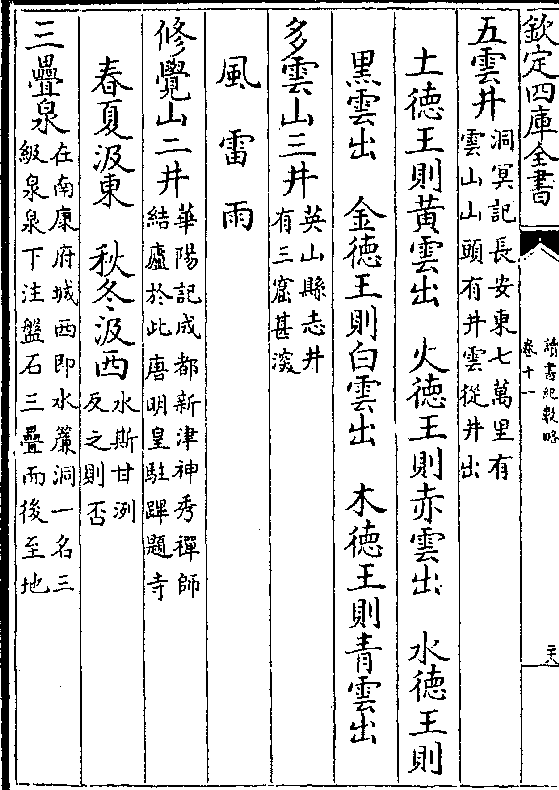 欽定四庫全書
讀書紀數略
卷十一
五雲井
洞冥記長安東七萬里有
雲山山頭有井雲從井出
土徳王則黄雲出　火徳王則赤雲出　水徳王則
黒雲出　金徳王則白雲出　木徳王則青雲出
多雲山三井
英山縣志井
有三窟甚深
風　雷　雨
修覺山二井
華陽記成都新津神秀禪師
結廬於此唐明皇駐蹕題寺
春夏汲東　秋冬汲西
水斯甘洌
反之則否
三疊泉
在南康府城西即水簾洞一名三
級泉泉下注盤石三疊而後至地